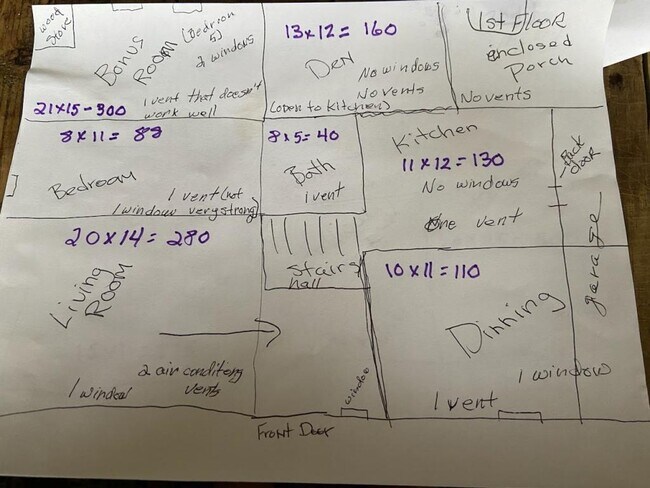 wood
stove
Bonus
Room
(Bedroom
5)
2 windows
21x15-300
1 vent that doesn't
work well
13x12= 160
Den
No windows
No vents
(open to kitchen)
1st Floor
enclosed
porch
No vents
8x11= 88
Bedroom
1 vent (not
1 window very strong)
8x5=40
Bath
1 vent
Kitchen
11x12=130
No windows
One vent
Back
door
garage
20x14= 280
Living
Room
2 air conditiong
vents
1 window
Stairs
hall
window
Front Door
10x11=110
Dinning
1 window
1 vent